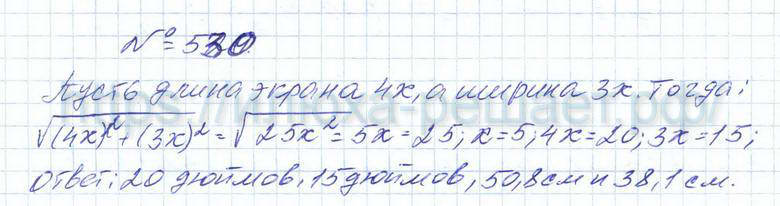 № 530
Пусть длина экрана 4x, а ширина 3x. Тогда:
√(4x)²+(3x)² = √25x² = 5x = 25; x = 5; 4x = 20; 3x = 15;
Ответ: 20 дюймов, 15 дюймов, 50,8 см и 38,1 см.